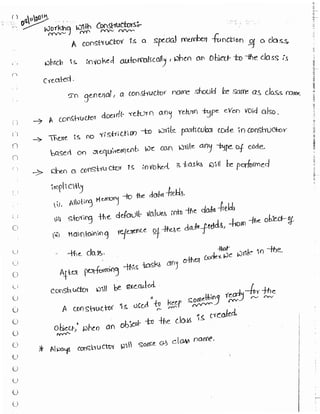 Working With Constructors:-
A constructor is a special member function of a class,
which is invoked automatically, when an object to the class is
created.
In general, a constructor name should be same as class name.
→ A constructor doesn't return any return type even void also.
→ There is no restriction to write particular code in constructor
based on requirement we can write any type of code.
→ When a constructor is invoked 3 tasks will be performed
implicitly
(i). Alloting Memory to the data fields.
(ii) storing the default values into the data fields
(iii) Maintaining reference of these data fields, from the object of
the class.
After performing this tasks any other code that we write in the
constructor will be executed.
A constructor is used "to keep something ready for the
object," when an object to the class is created.
* Always constructor will same as class name.